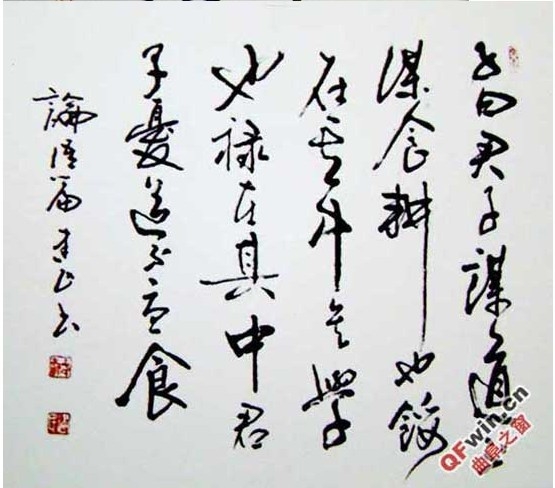 子曰君子謀道不
谋食耕也餒
在其中矣學
也禄在其中君
子憂道不食
論语篇书
QFwin.cn
曲阜之窗